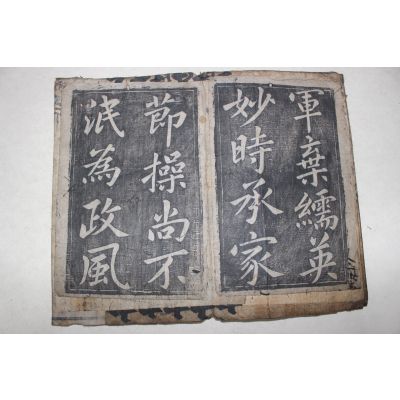 軍棄繻英
妙時承家
節操尚不
泯為政風